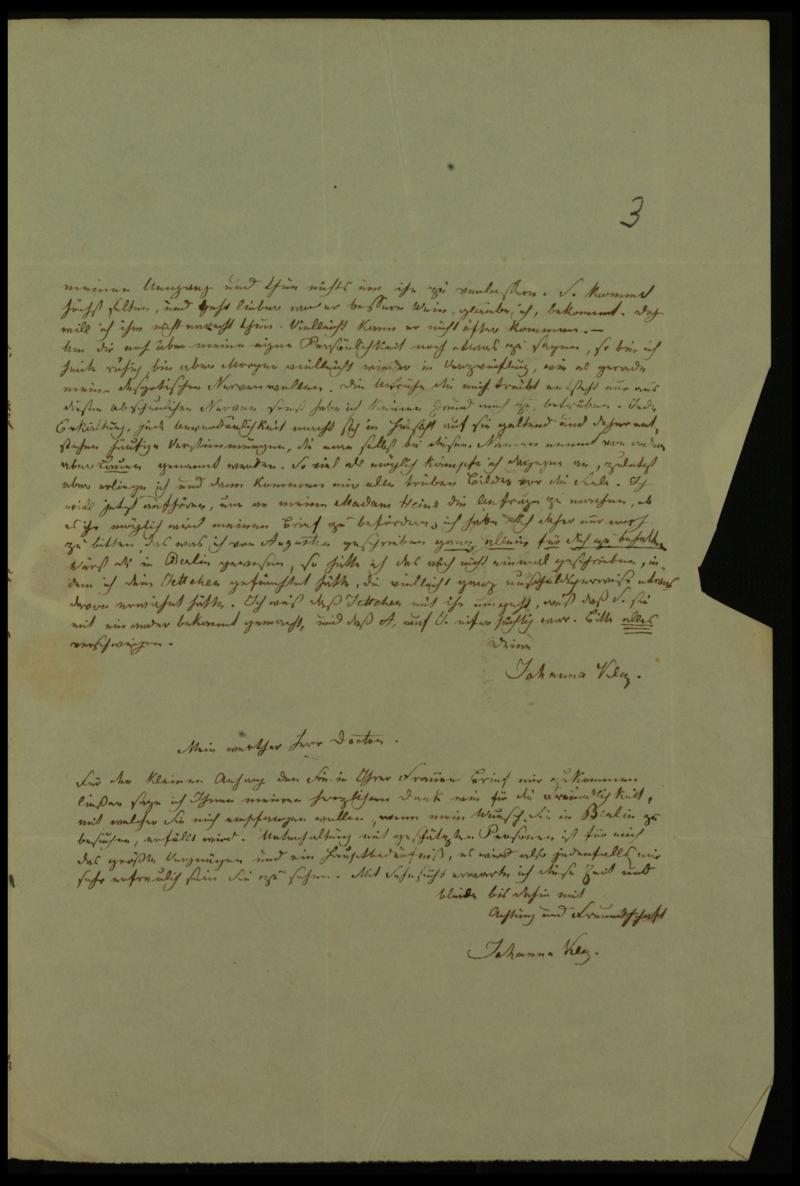 3
meinen Umgang und thun nichts um ihn zu verbessern. S. kommt
höchst selten, und geht lieber wo er bessern Wein, glaube ich, bekommt. Doch
will ich ihm nicht unrecht thun. Vielleicht kann er nicht öfter kommen. —
Um dir noch über meine eigne Persönlichkeit noch etwas zu sagen, so bin ich
heute ruhig, bin aber Morgen vielleicht wieder in Verzweiflung, wie es gerade
meine despotischen Nerven wollen. Die Unruhe die mich treibt entsteht nur aus
diesen abscheulichen Nerven sonst habe ich keinen Grund mich zu betrüben. Jede
Erkältung, jede Unverdaulichkeit macht sich in Hinsicht auf sie geltend und daher ent-
stehen häufige Verstimmungen, die man selbst bei diesem Namen nennt von andern
aber Launen genannt werden. So viel als möglich kämpfe ich dagegen an, zuletzt
aber erliege ich und dann kommen mir alle trüben Bilder vor die Seele. Ich
will jetzt aufhören, um an meine Madam Heine die Anfrage zu machen, ob
es ihr möglich wird meinen Brief zu befördern, ich habe dich daher nur noch
zu bitten das was ich von Augusten geschrieben ganz allein für dich zu behalten
wärst du in Berlin gewesen, so hätte ich das noch nicht einmal geschrieben, in-
dem ich dein Jettchen gefürchtet hätte, die vielleicht ganz unschuldigerweise etwas
davon erwähnt hätte. Ich weiß daß Jettchen mit ihr umgeht, auch daß S. sie
mit einander bekannt gemacht, und daß A. auf J. eifersüchtig war. Bitte alles
verschweigen.
Deine
Johanna
Mein werther Herr Doctor.
Für den kleinen Anhang den Sie in Ihrer Frauen Brief mir zukommen
ließen sage ich Ihnen meinen herzlichen Dank wie für die Freundlichkeit,
mit welcher Sie mich empfangen wollen, wenn mein Wunsch, Sie in Berlin zu
besuchen, erfüllt wird. Unterhaltung mit geschätzten Personen ist für mich
das größte Vergnügen und ein Hauptbedürfniß, es wird also jedenfalls mir
sehr erfreulich sein Sie zu sehen. Mit Sehnsucht erwarte ich diese Zeit und
bleibe bis dahin mit
Achtung und Freundschaft
Johanna